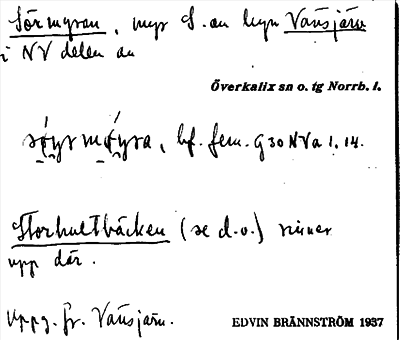 Sörmyran, myr S. om byn Vänsjärv
i NV delen av
Överkalix sn o. tg Norrb. l.
bf. fem. G30 NVa 1.14.
Storhultbäcken (se d.o.) rinner
upp där.
Uppg. fr. Vänsjärv.
EDVIN BRÄNNSTRÖM 1937